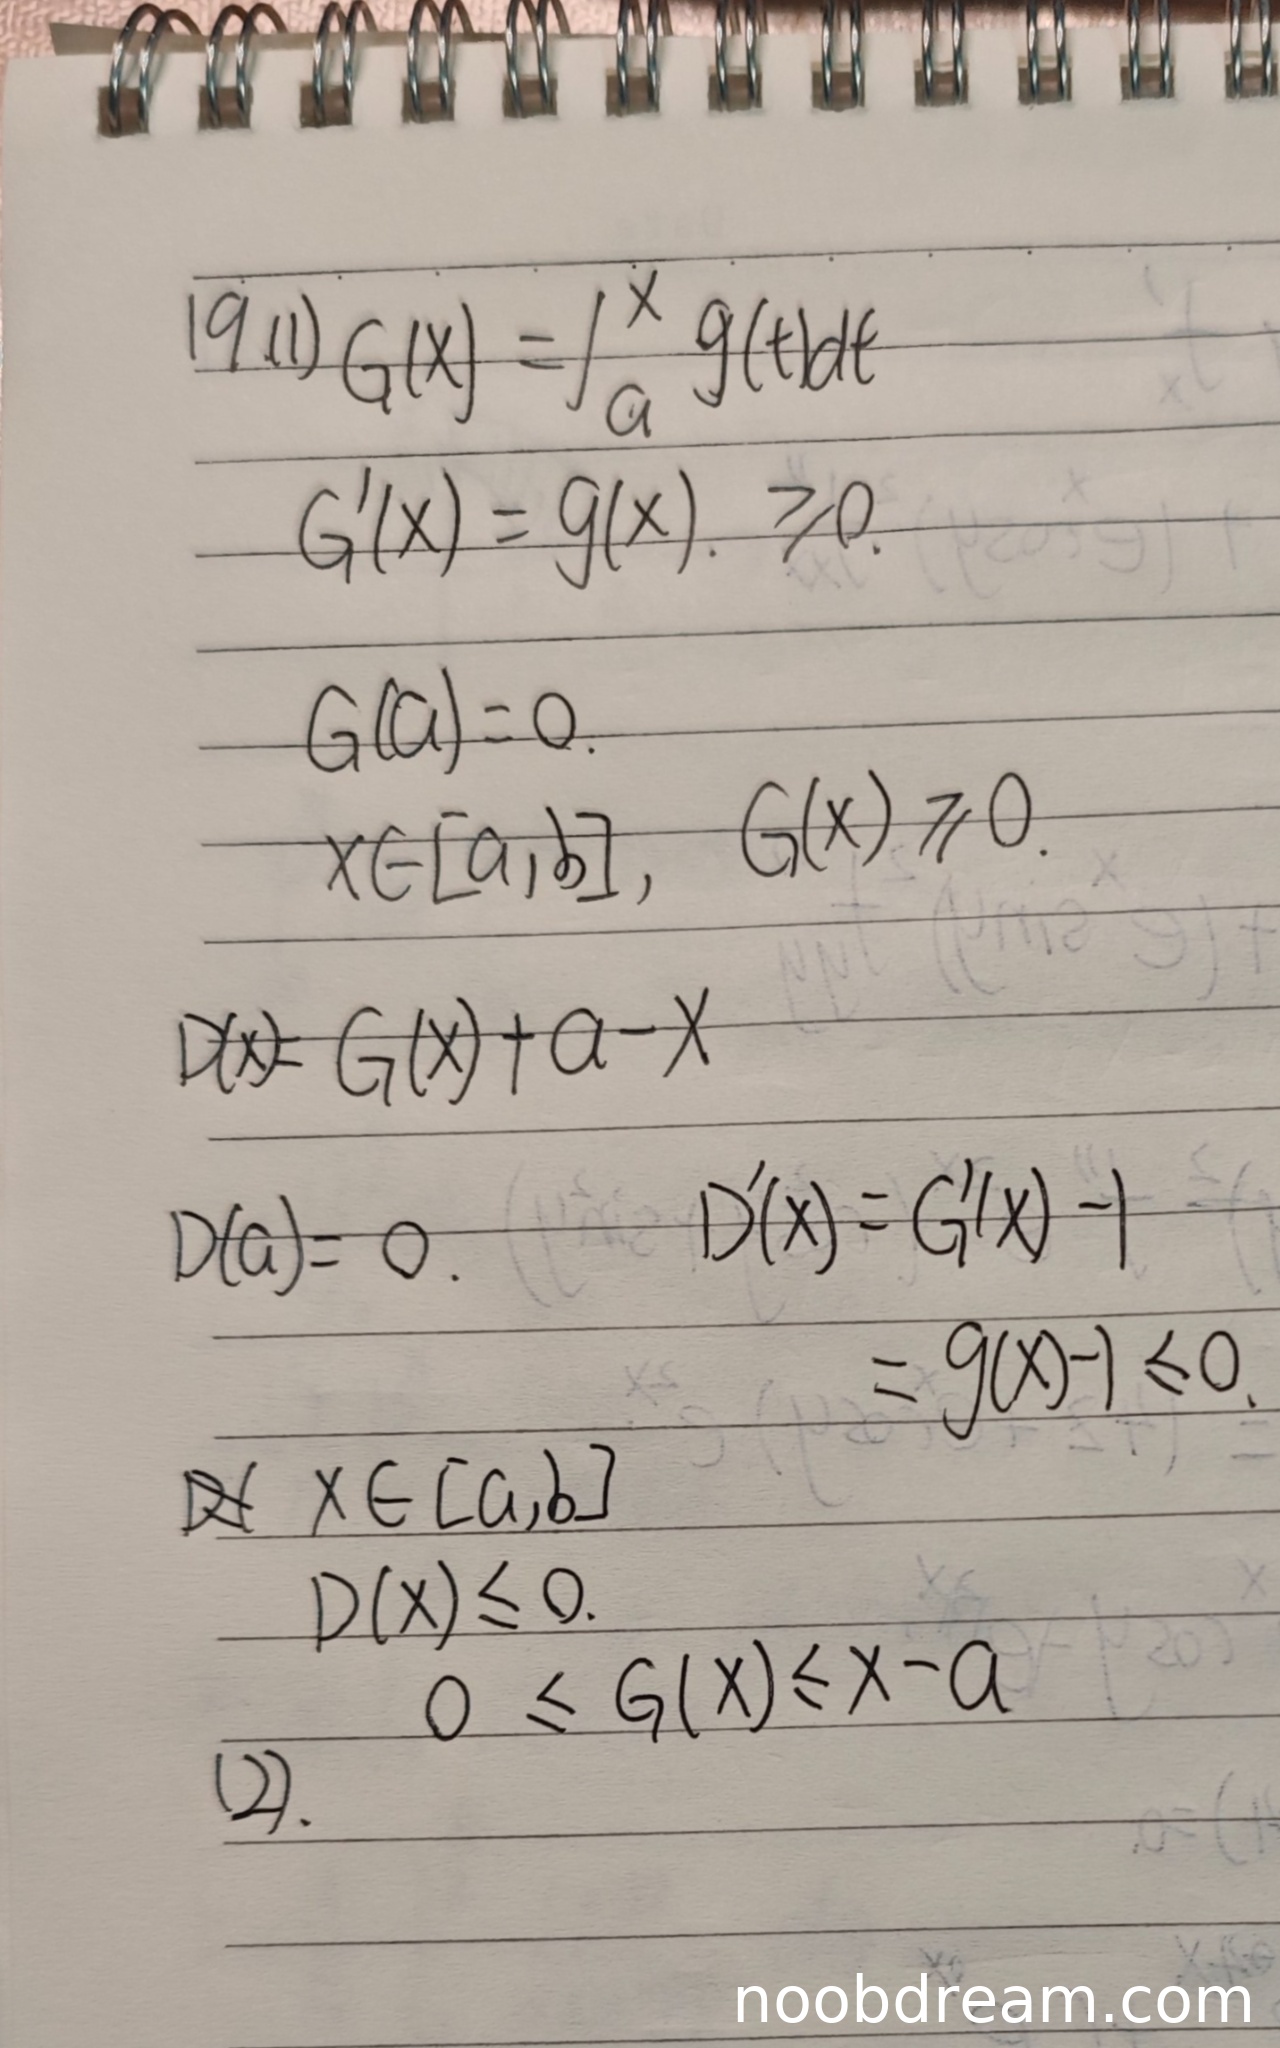 19.(1) G(x) = ∫ₐˣ g(t)dt
G'(x) = g(x). ≥0.
G(a) = 0.
x∈[a,b], G(x) ≥ 0.
D(x)= G(x)+a-x
D(a)= 0. D'(x) = G'(x) -1
= g(x)-1 ≤0.
x∈[a,b]
D(x)≤0.
0 ≤ G(x) ≤ x-a
(2).
noobdream.com